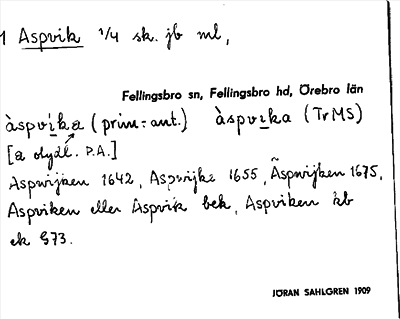 1 Aspvik 1/4 sk. jb ml,
Fellingsbro sn, Fellingsbro hd, Örebro län
àspvika (prim.-ant.) àspvika (TrMS)
[a otydl. P.A.]
Aspwijken 1642, Aspvijke 1655, Äspwijken 1675,
Aspviken eller Aspvik bek, Aspviken kb
ek 573.
JÖRAN SAHLGREN 1909